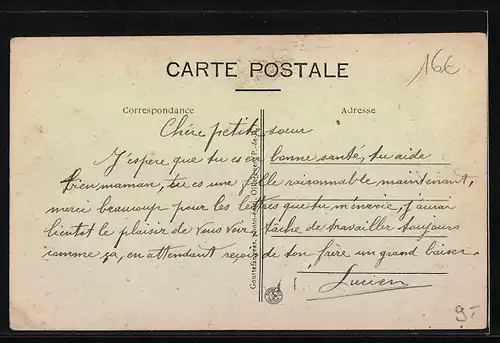 16€
CARTE POSTALE
Correspondance
Adresse
Chère petite sœur
J'espère que tu es en bonne santé, tu aide
bien maman, tu es une fille raisonnable maintenant,
merci beaucoup pour les lettres que tu m'envoie, j'aurai
bientôt le plaisir de vous voir, tâche de travailler toujours
comme ça, en attendant reçois de ton frère un grand baiser
Lucien
9.-